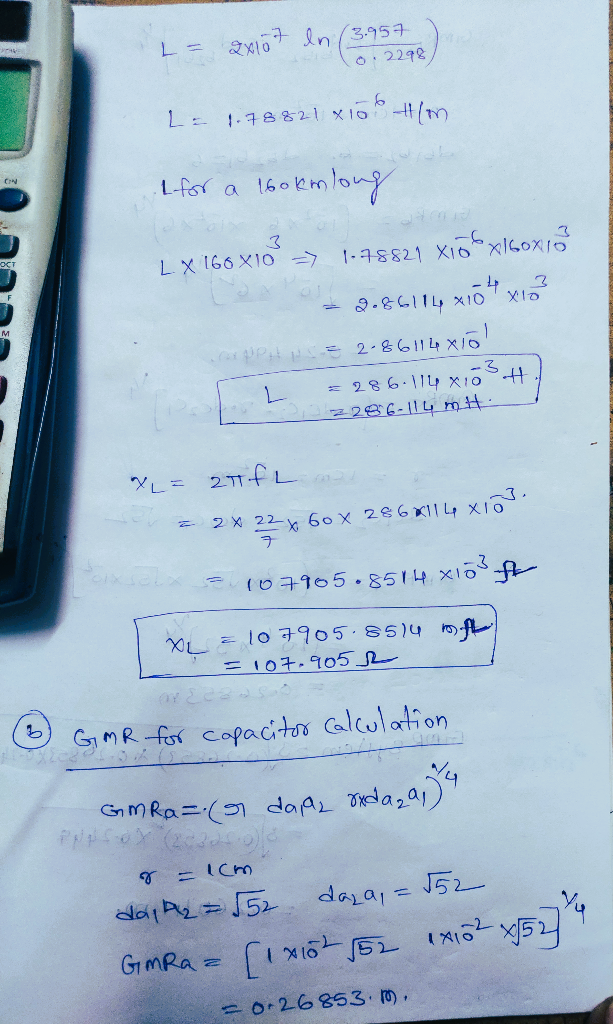 L = 2x10^-7 ln (3.957 / 0.2298)
L = 1.78821 x10^-6 H/m
L for a 160km long
L x 160 x10^3 => 1.78821 x10^-6 x160x10^3
= 2.86114 x10^-4 x10^3
= 2.86114 x10^-1
L = 286.114 x10^-3 H.
= 286.114 mH.
XL = 2πfL
= 2 x 22/7 x 60 x 286.114 x10^-3.
= 107905.8514 x10^-3 Ω
XL = 107905.8514 mΩ
= 107.905 Ω
b GMR for capacitor calculation
GMRa = (r da1a2 rxda2a1)^1/4
r = 1cm
da1a2 = √52 da2a1 = √52
GMRa = [1x10^-2 √52 1x10^-2 x√52]^1/4
= 0.26853.m.
ON
OCT
F
M